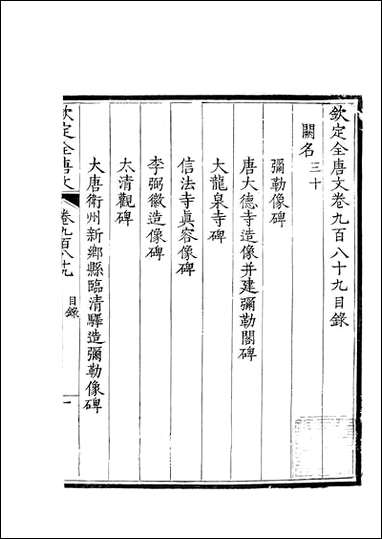 欽定全唐文卷九百八十九目錄
闕名三十
彌勒像碑
唐大德寺造像并建彌勒閣碑
大龍泉寺碑
信法寺眞容像碑
李弼徽造像碑
太清觀碑
大唐衛州新鄉縣臨清驛造彌勒像碑
欽定全唐文 卷九百八十九 目錄 一